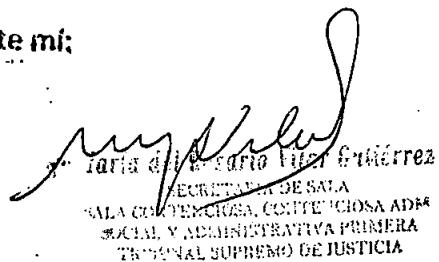 te mí:
María del Rosario Vilar Gutiérrez
SECRETARIA DE SALA
SALA CONTENCIOSA, CONTENCIOSA ADM.
SOCIAL Y ADMINISTRATIVA PRIMERA
TRIBUNAL SUPREMO DE JUSTICIA